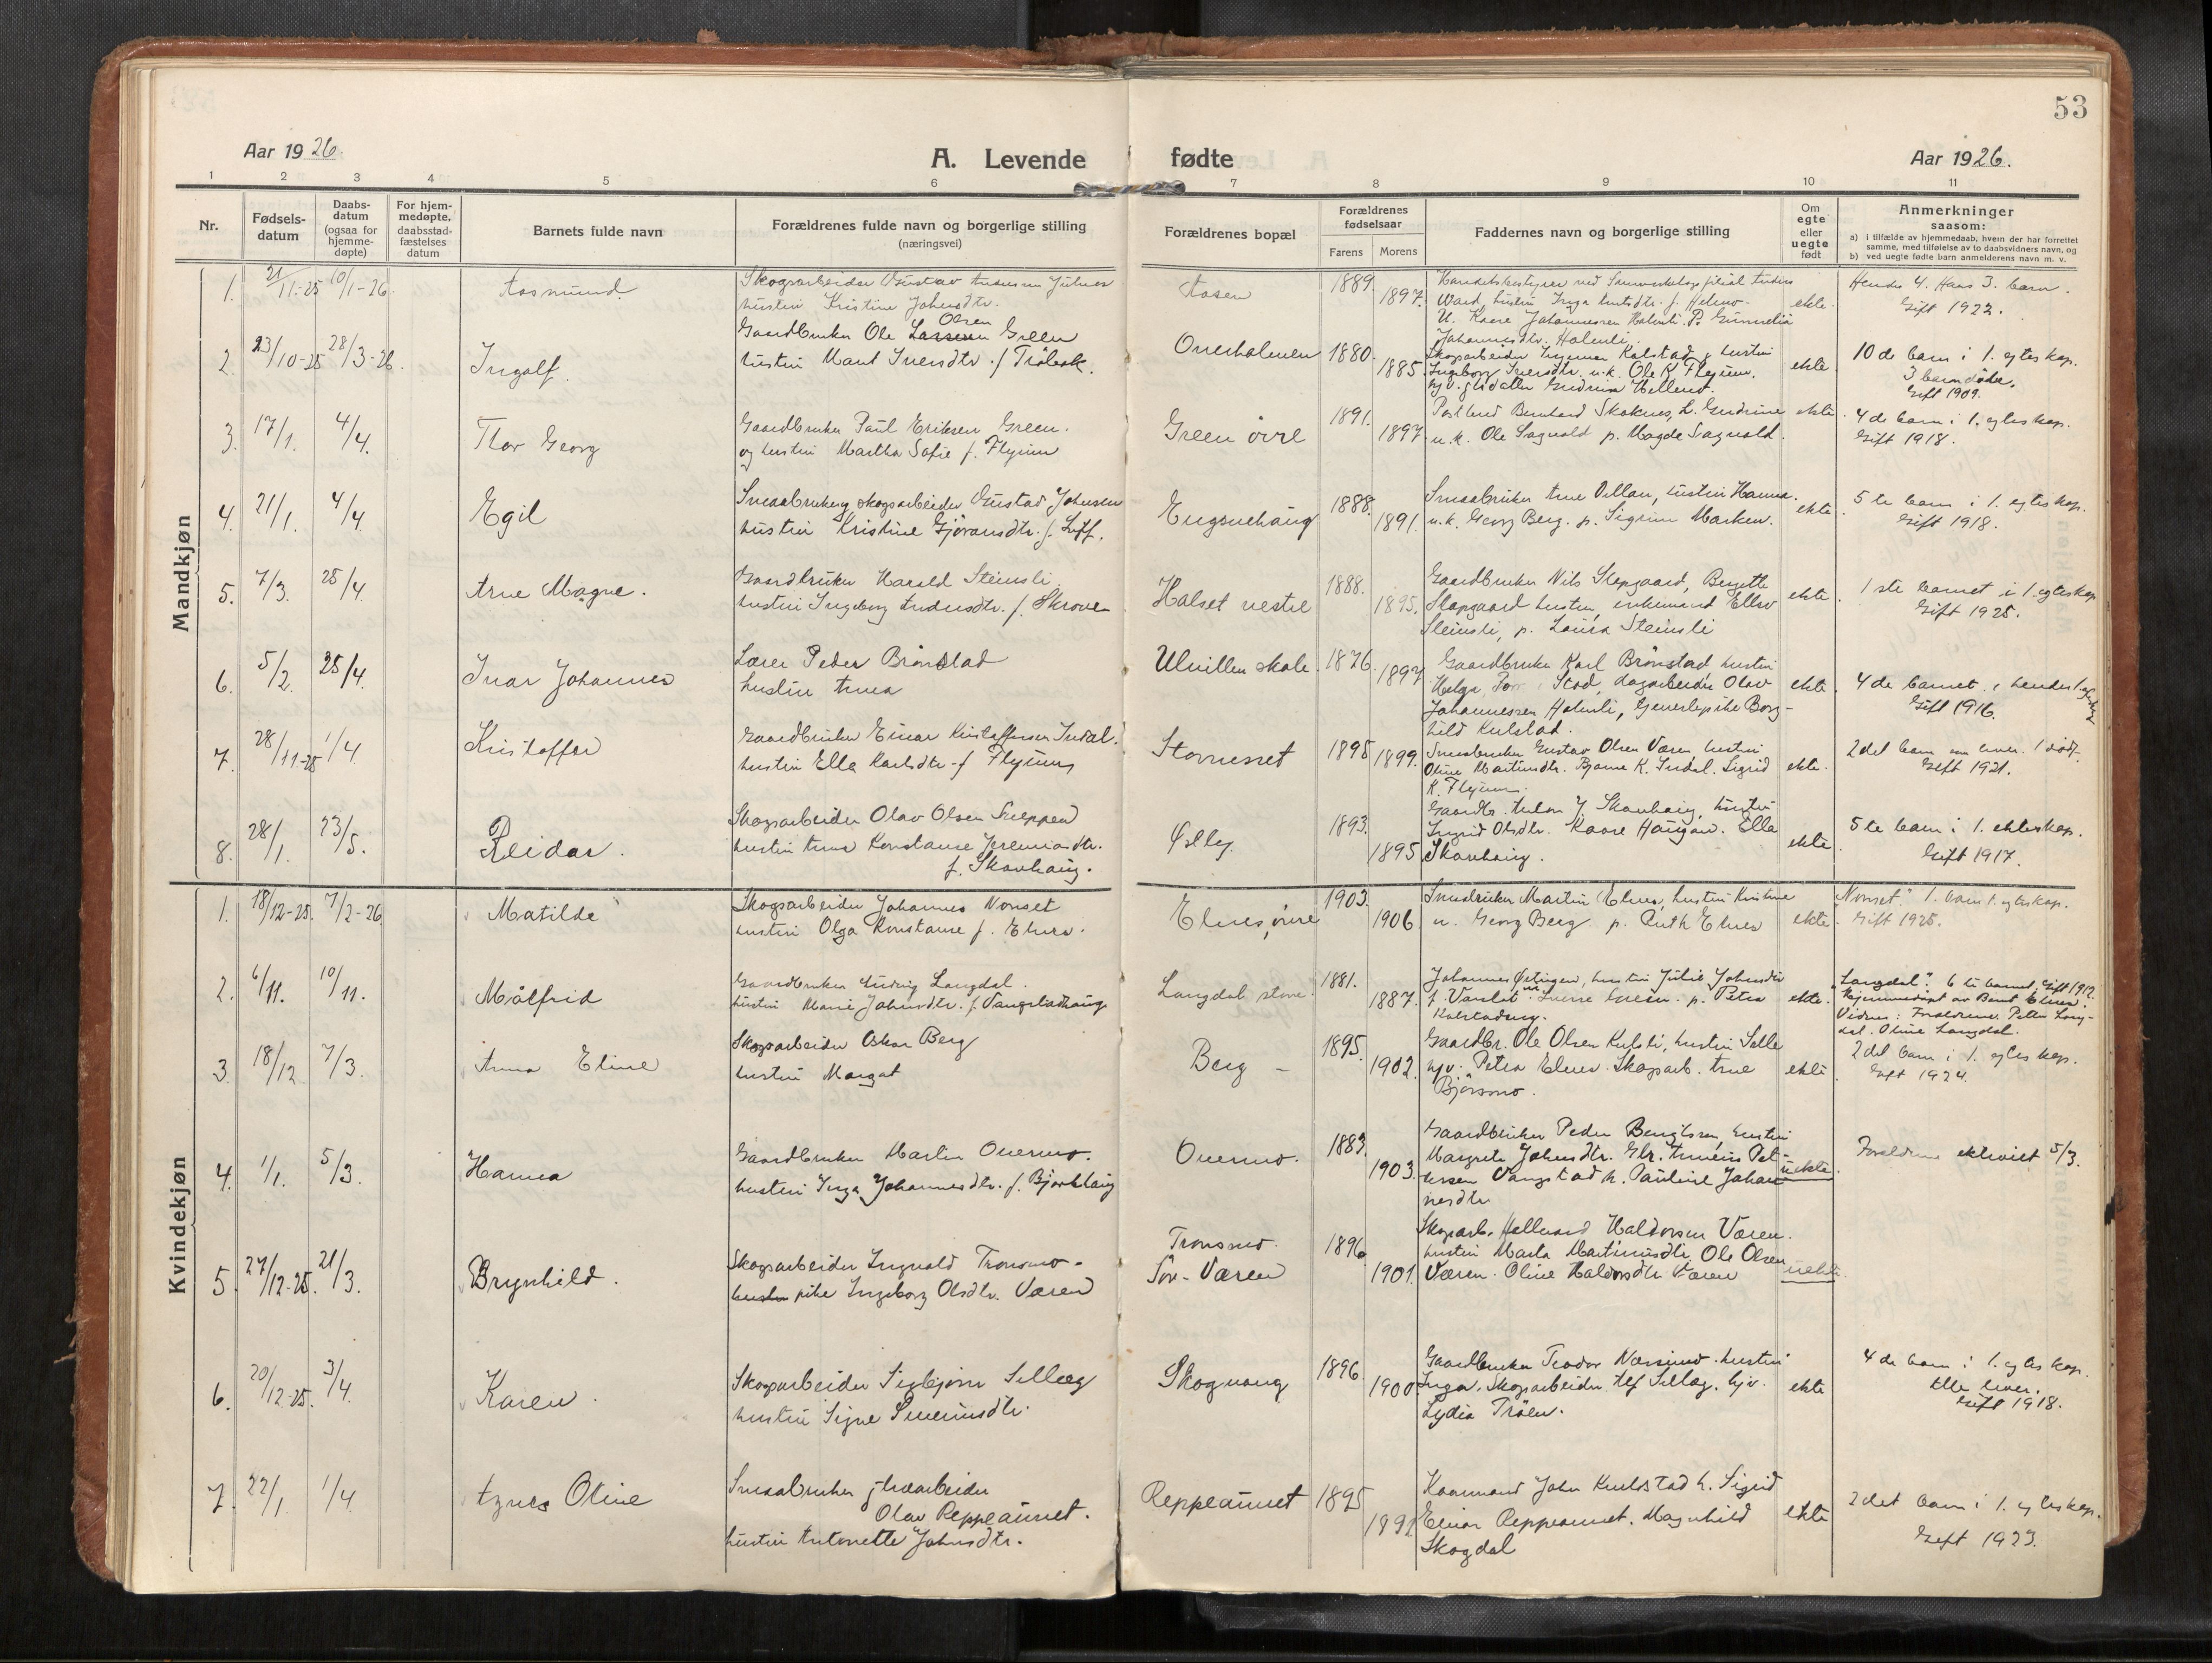 53
Aar 1926.
A. Levende fødte
Aar 1926.
1 2 3 4 5 6 7 8 9 10 11
Nr.
Fødsels-
datum
Daabs-
datum
(ogsaa for
hjemme-
døpte)
For hjem-
medøpte,
daabsstad-
fæstelses
datum
Barnets fulde navn
Forældrenes fulde navn og borgerlige stilling
(næringsvei)
Forældrenes bopæl
Forældrenes
fødselsaar
Farens Morens
Faddernes navn og borgerlige stilling
Om
egte
eller
uegte
født
Anmerkninger
saasom:
a) i tilfælde av hjemmedaab, hvem der har forrettet
samme, med tilføielse av to daabsvidners navn, og
b) ved uegte fødte barn anmelderens navn m. v.
Mandkjøn
1. 21/11-25 10/1-26 Aasmund.
Skogsarbeider Gustav Andersen
hustru Kristine Johnsdtr.
Aasen 1889. 1897.
ekte.
Hendes 4. Hans 3. barn.
Gift 1922.
2. 23/10-25 28/3-26. Ingolf.
Olsen
Gaardbruker Ole Larssen Green
hustru Marit Iversdtr. f.
Overholmen 1880. 1885.
Johannesdtr. Holmli.
Skogsarbeider Ingemar Kolstad, hustru
Ingeborg Iversdtr. u.k. Ole K. Flyum.
ekte
10 de barn i 1. egteskap.
3 barn døde.
Gift 1909.
3. 17/1. 4/4. Thor Georg
Gaardbruker Paul Eriksen Green.
og hustru Martha Sofie f. Flyum
Green övre 1891. 1897
Bernhard Skoknes, h. Gudrine
u.k. Ole Sagvold p. Magda Sagvold.
ekte.
4 de barn i 1. egteskap.
Gift 1918.
4. 21/1. 4/4. Egil
Smaabruker og skogsarbeider Gustad Johnsen
hustru Kristine Gjöransdtr. f.
1888. 1891.
Smaabruker Arne Villan, hustru Hanna.
u.k. Georg Berg. p. Sigrun Marken.
ekte.
5 te barn i 1. egteskap.
Gift 1918.
5. 7/3. 25/4. Arne Magne.
Gaardbruker Harald Steinsli.
hustru Ingeborg Andersdtr. f. Skrove
Halset vestre 1888. 1895.
Gaardbruker Nils Slapgaard, Bergitte
Slapgaard hustru, enkemand Ellev
Steinsli, p. Laura Steinsli
ekte.
1 ste barnet i 1. egteskap
Gift 1925.
6. 5/2. 25/4. Ivar Johannes
Lærer Peder Brönstad
hustru Anna
Ulvillen skole. 1876. 1897
Gaardbruker Karl Brönstad hustru
Helga, Stod, dagarbeider Olav
Johannessen Holmli, Borg-
hild Kulstad.
ekte.
4 de barnet i hendes 1.
Gift 1916.
7. 28/11-25 1/4. Kristoffer
Gaardbruker Einar Kristoffersen Indal.
hustru Ella Karlsdtr. f. Flyum
Stornesset 1895 1899.
Smaabruker Gustav Olsen Væren hustru
Oline Martinsdtr. Bjarne K. Indal. Sigrid
K. Flyum.
ekte.
2 det barn
Gift 1921.
8. 28/1. 23/5. Reidar.
Skogsarbeider Olav Olsen
hustru Anna Konstanse Jeremiasdtr.
f. Skavhaug.
1893. 1895
Gaardbr. Anton J. Skavhaug, hustru
Ingrid Olsdtr. Kaare Haugan. Ella
Skavhaug.
ekte.
5 te barn i 1. ekteskap.
Gift 1917.
Kvindekjøn
1. 18/12-25. 7/2-26. Matilde
Skogsarbeider Johannes Nonset
hustru Olga Konstanse f. Elnes.
Elnes, övre 1903. 1906
Smaabruker Martin Elnes, hustru Kristine
u. Georg Berg p. Ruth Elnes
ekte.
"Nonset." 1. barn 1. egteskap.
Gift 1925.
2. 6/11. 10/11. Målfrid
Gaardbruker Ludvig Langdal.
hustru Marie Johnsdtr. f. Vangstadhaug
Langdal store. 1881. 1887.
ekte.
"Langdal". 6 te barnet, Gift 1912.
Hjemmedøpt av Bernt Elnes.
Vidner: Forældrene. Petter Lang-
dal. Oline Langdal.
3 18/12 7/3. Anna Eline
Skogsarbeider Oskar Berg
hustru Margot
Berg 1895. 1902.
Gaardbr. Ole Olsen Kulsli, hustru
Petra Elnes. Skogarb. Arne
Björsmo.
ekte.
2 det barn i 1. egteskap.
Gift 1924.
4. 1/1. 5/3. Hanna
Gaardbruker Martin Overmo.
hustru Inga Johannesdtr. f. Björkhaug
Overmo. 1883. 1903.
Gaardbruker Peder Bengtsen, hustru
Margrete Johnsdtr. Gbr. Pet-
ersen Vangstad h. Pauline Johan-
nesdtr
uekte.
Forældrene ekteviet 5/3.
5. 27/12-25. 21/3. Brynhild.
Skogsarbeider Ingvald Tronsmo.
hustru pike Ingeborg Olsdtr. Væren
Tronsmo.
Sör-Væren 1896 1901.
Skogarb. Hallvard Haldorsen Væren.
hustru Marta Martinusdtr. Ole Olsen
Væren. Oline Haldorsdtr Væren
uekte.
6. 20/12-25. 3/4 Karen.
Skogsarbeider Sigbjørn Selleg
hustru Signe
Skogvang 1896 1900
Gaardbruker Teodor hustru
Inga. Skogsarbeider Alf
Lydia Tröen.
ekte
4 de barn i 1. egteskap.
Alle lever.
Gift 1918.
7. 22/1. 1/4. Agnes Oline
Smaabruker træarbeider
Olav Reppeaunet.
hustru Antonette Johnsdtr.
Reppeaunet 1895 1891
John Kulstad h. Sigrid
Einar Reppeaunet. Magnhild
Skogdal
ekte
2 det barn i 1. egteskap.
Gift 1923.